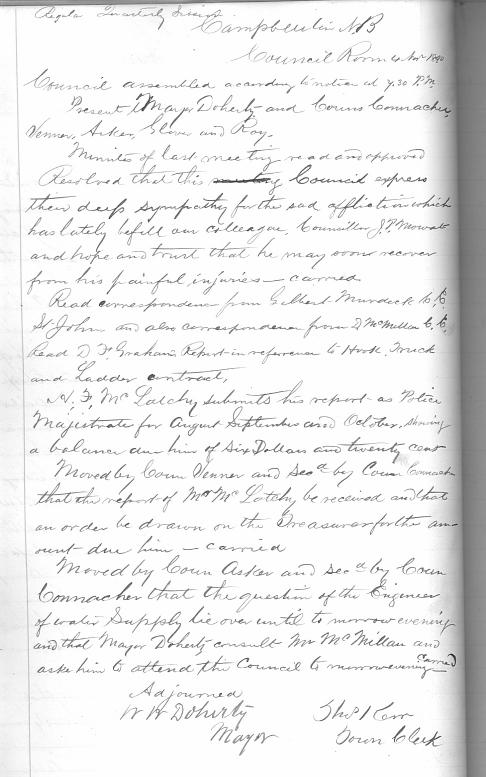 Regular Quarterly Session
Campbellton N.B
Council Room 4 Nov 1890
Council assembled according to notice at 7.30 P.M.
Present Mayor Doherty and Couns Connacher,
Venner, Asker, Glover and Roy.
Minutes of last meeting read and approved
Resolved that this meeting Council express
their deep sympathy for the sad affliction which
has lately befell our colleague, Councillor J.P. Mowat
and hope and trust that he may soon recover
from his painful injuries — carried
Read correspondence from Gilbert Murdock C.E.
St John and also correspondence from D McMillan C.E.
Read D. F. Graham Report in reference to Hook, Truck
and Ladder contract,
N. F. McLatchy submits his report as Police
Magistrate for August September and October, showing
a balance due him of Six Dollars and twenty cent
Moved by Coun Venner and Secd by Coun Connacher
that the report of Mr McLatchy be received and that
an order be drawn on the Treasurer for the am-
ount due him — carried
Moved by Coun Asker and Secd by Coun
Connacher that the question of the Engineer
of water Supply lie over until to morrow evening
and that Mayor Doherty consult Mr McMillan and
ask him to attend the Council to morrow evening carried
Adjourned
W W Doherty
Mayor
Thos Kerr
Town Clerk